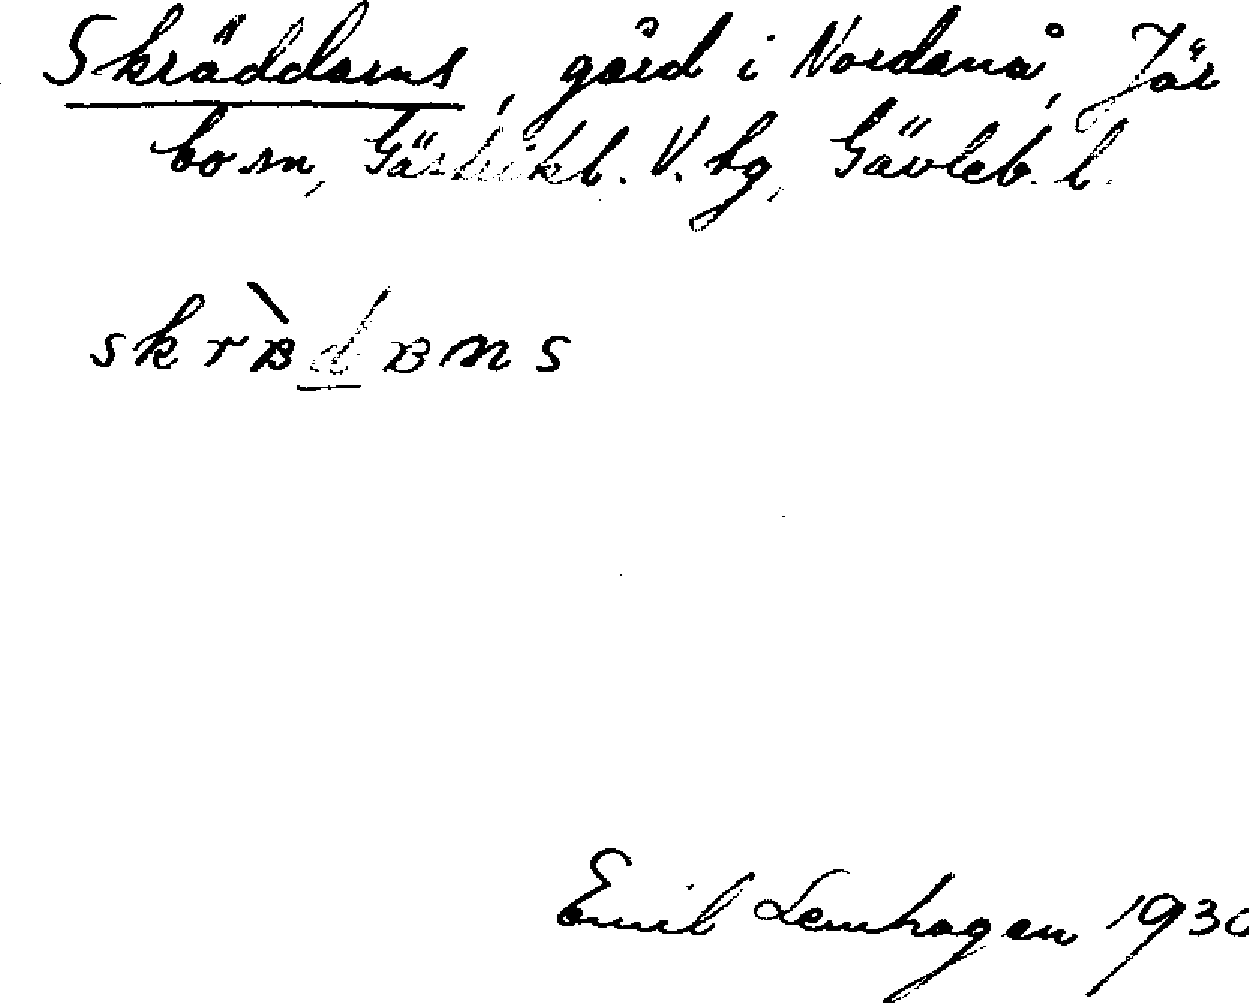 Skräddarns, gård i Nordanå, Jär
bo sn, Gästrikl. V. hg, Gävleb. l.
skrὰdʙns
Emil Lennhagen 1930